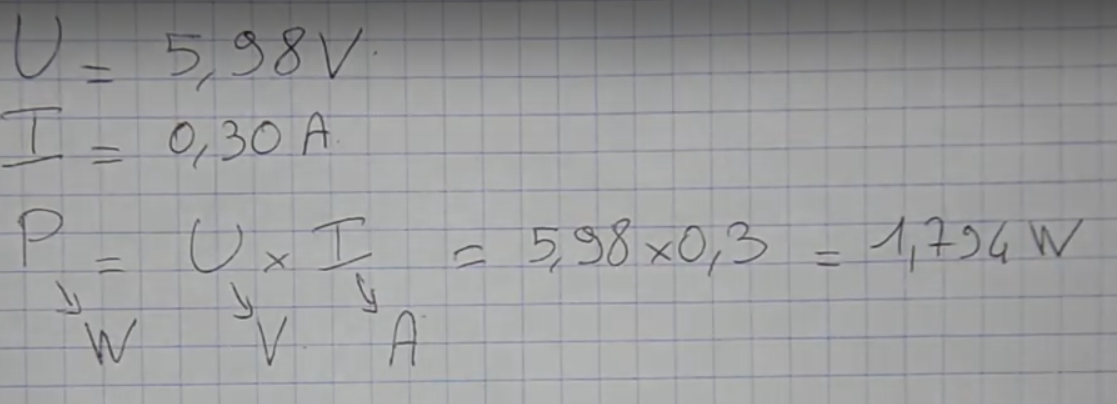 U = 5,98V
I = 0,30 A
P = U × I = 5,98 × 0,3 = 1,794 W
↘ W ↘ V ↘ A